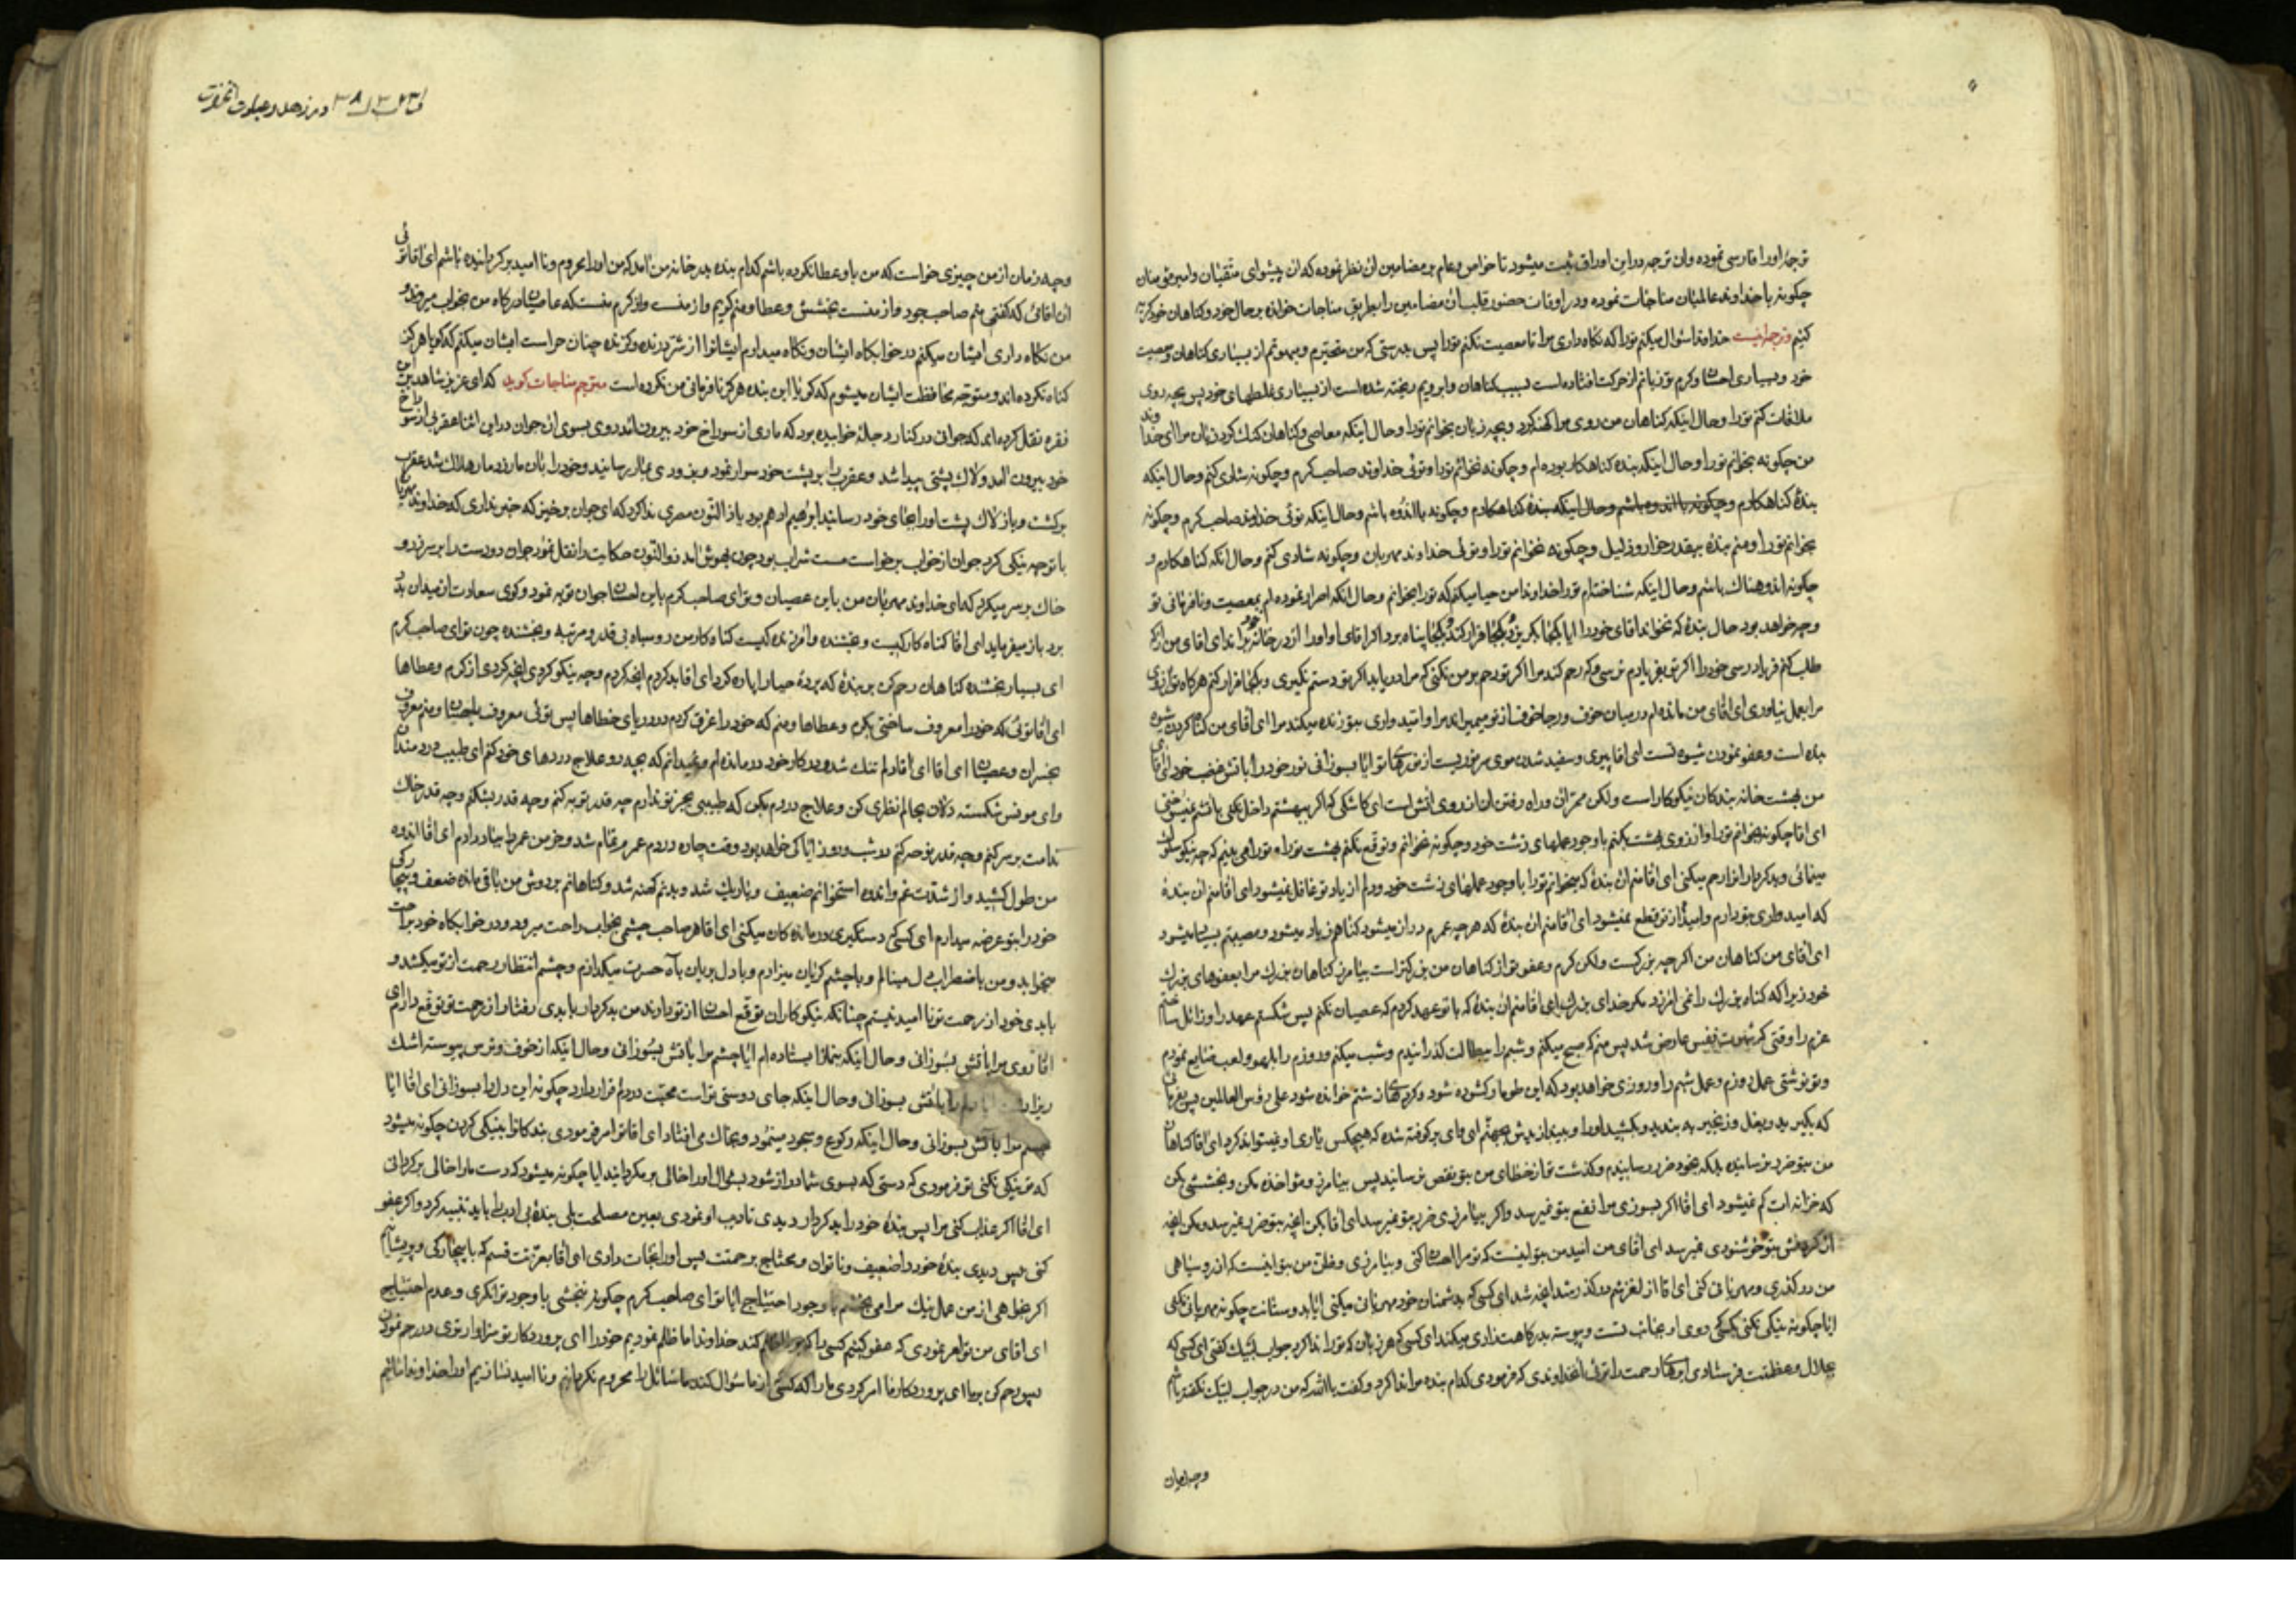 ترجمه او را فارسی نموده وان ترجمه در این اوراق ثبت میشود تا خواص و عام بر مضامین ان نظر نموده که ان پیشوای متقیان وامیر مؤمنان
چکونه با خداوند عالمیان مناجات نموده و در اوقات حضور قلب ان مضامین را بطریق مناجات خوانده بر حال خود و کناهان خود کریه
کنیم وترجمه اینست خداوندا سؤال میکنم تو را که نکاه داری مرا تا معصیت نکنم تو را پس بدرستی که من متحیرم و مبهوتم از بسیاری کناهان ومعصیت
خود و بسیاری احسان وکرم تو زبانم از حرکت افتاده است بسبب کناهان وابرویم ریخته شده است از بسیاری غلطهای خود پس بچه روی
ملاقات کنم تو را وحال اینکه کناهان من روی مرا کهنه کرد و بچه زبان بخوانم تو را وحال اینکه معاصی وکناهان کنک کرد زبان مرا ای خداوند
من چکونه بخوانم تو را وحال اینکه بنده کناهکار بوده ام و چکونه نخوانم تو را وتوئی خداوند صاحب کرم و چکونه شادی کنم وحال اینکه
بندۀ کناهکارم و چکونه با اندوه باشم وحال اینکه بندۀ کناهکارم وچکونه با اندوه باشم وحال اینکه توئی خداوند صاحب کرم وچکونه
بخوانم تو را ومنم بندۀ بیقدر خوار و ذلیل و چکونه نخوانم تو را وتوئی خداوند مهربان وچکونه شادی کنم وحال انکه کناهکارم و
چکونه اندوهناک باشم وحال اینکه شناخته‌ام تو را خداوندا من حیا میکنم که تو را بخوانم وحال انکه اصرار نموده ام بمعصیت ونافرمانی تو
وچه خواهد بود حال بندۀ که نخواند اقای خود را ایا بکجا بکریزد وبکجا قرار کند وبکجا پناه برد اکر اقای او او را از در خانه خود براند ای اقای من از که
طلب کنم فریادرسی خود را اکر تو بفریادم نرسی وکه رحم کند مرا اکر تو رحم بر من نکنی که مرا دریابد اکر تو دستم نکیری وبکجا فرار کنم هرکاه تو ارزوی
مرا بعمل نیاوری ای اقای من مانده ام در میان خوف ورجا خوف از تو میمیراند مرا وامیدواری بتو زنده میکند مرا ای اقای من کناه کردن شیوه
بنده است وعفو نمودن شیوه تست ای اقا پیری وسفید شدن موی سر نوریست از نورهای تو ایا بسوزانی نور خود را باتش غضب خود ای اقای
من بهشت خانه بندکان نیکوکار است ولکن ممر ان وراه رفتن ان از روی اتش است ای کاشکی که اکر ببهشتم داخل نکنی باتشم نمیسوختی
ای اقا چکونه بخوانم تو را وارزوی بهشت بکنم با وجود عملهای زشت خود وچکونه نخوانم وتوقع نکنم بهشت تو را و تو را می بینم که چه نیکو سلوک
مینمائی وبدکردار انرا رحم میکنی ای اقا منم ان بندۀ که میخوانم تو را با وجود عملهای زشت خود ودلم از یاد تو غافل نمیشود ای اقا منم ان بندۀ
که امیدواری بتو دارم وامیدم از تو قطع نمیشود ای اقا منم ان بندۀ که هرچه عمرم دراز میشود کناهم زیاد میشود ومصیبتم بسیار میشود
ای اقای من کناهان من اکرچه بزرکست ولکن کرم وعفو تو از کناهان من بزرکتر است بیامرز کناهان بزرک مرا بعفوهای بزرک
خود زیرا که کناه بزرک را نمی امرزد مکر خدای بزرک ای اقا منم ان بندۀ که با تو عهد کردم که عصیان نکنم پس شکستم عهد را وزائل ساختم
عزم را وقتی که شهوت نفس عارض شد پس منم که صبح میکنم وشبم را ببطالت کذرانیدم وشب میکنم وروزم را بلهو ولعب ضایع نمودم
وتو نوشتی عمل روزم وعمل شبم را وروزی خواهد بود که این طومار کشوده شود وکرده های زشتم خوانده شود علی رؤس العالمین پس بفرمائی
که بکیرید وبغل وزنجیر به بندید وبکشید او را وبیندازیدش بجهنم ای وای بر کوفته شده که هیچکس یاری او نمیتواند کرد ای اقا کناهان
من بتو ضرر نرسانیده بلکه بخود ضرر رسانیدم وکذشت تو از خطای من بتو نقص نرسانید پس بیامرز ومؤاخذه مکن وبخششی بکن
که خزانه ات کم نمیشود ای اقا اکر بسوزی مرا نفع بتو نمیرسد واکر بیامرزی ضرر بتو نمیرسد ای اقا بکن انچه بتو ضرر نمیرسد ومکن انچه
از کردنش بتو خوشنودی نمیرسد ای اقای من امید من بتو اینست که تو مرا احسان کنی وبیامرزی وظن من بتو اینست که از روسیاهی
من درکذری ومهربانی کنی ای اقا از لغزشم درکذر شد انچه شد ای کسی که بدشمنان خود مهربانی میکنی ایا بدوستانت چکونه مهربانی نکنی
ایا چکونه نیکی نکنی بکسی که روی او بجانب تست وپیوسته بدرکاهت زاری میکند ای کسی که هر زمان که تو را ندا کردم جواب لبیک کفتی ای کسی که
بجلال وعظمتت فرستادی ابرهای رحمت را توئی انخداوندی که فرمودی کدام بنده مرا ندا کرد وکفت یا الله که من در جواب لبیک نکفته باشم
وچه زمان
در زهد و عبادت انحضرت
وچه زمان از من چیزی خواست که من باو عطا نکرده باشم کدام بنده بدر خانه من امد که من او را محروم ونا امید بر کردانیده باشم ای اقا توئی
ان اقائی که کفتی منم صاحب جود واز منست بخشش وعطا ومنم کریم واز منست واز کرم منست که عاصیان درکاه من بخواب میروند و
من نکاه داری ایشان میکنم در خوابکاه ایشان ونکاه میدارم ایشانرا از شر درنده وکزنده چنان حراست ایشان میکنم که کویا هرکز
کناه نکرده اند ومتوجه محافظت ایشان میشوم که کویا این بنده هرکز نافرمانی من نکرده است مترجم مناجات کوید که ای عزیز شاهد این
فقره نقل کرده اند که جوانی در کنار دجله خوابیده بود که ماری از سوراخ خود بیرون امد روی بسوی ان جوان در این اثنا عقربی از سوراخ
خود بیرون امد ولاک پشتی پیدا شد وعقرب را بر پشت خود سوار نمود وبزودی بمار رسانید وخود را بان مار زد مار هلاک شد عقرب
برکشت وباز لاک پشت او را بجای خود رسانید ابراهیم ادهم بود یا ذا النون مصری ندا کرد که ای جوان برخیز که خبر نداری که خداوند مهربان
با تو چه نیکی کرد جوان از خواب برخواست مست شراب بود چون بهوش امد ذو النون حکایت را نقل نمود جوان دو دست را بر سر زد و
خاک بر سر میکرد که ای خداوند مهربان من باین عصیان وتو ای صاحب کرم باین احسان جوان توبه نمود وکوی سعادت از میدان بدر
برد باز میفرماید ای اقا کناه کار کیست وبخشنده وامرزنده کیست کناه کار من روسیاه بی قدر ومرتبه وبخشنده چون تو ای صاحب کرم
ای بسیار بخشنده کناهان رحم کن بر بندۀ که پردۀ حیا را پاره کرد ای اقا بد کردم انچه کردم وچه نیکو کردی انچه کردی از کرم وعطاها
ای اقا توئی که خود را معروف ساختی بکرم وعطاها ومنم که خود را غرق کردم در دریای خطاها پس توئی معروف باحسان ومنم معروف
بخسران وعصیان ای اقا ای اقا دلم تنک شد ودر کار خود درمانده ام ونمیدانم که بچه رو علاج دردهای خود کنم ای طبیب دردمندان
وای مونس شکسته دلان بحالم نظری کن وعلاج دردم بکن که طبیبی بجز تو ندارم چه قدر توبه کنم وچه قدر بشکنم وچه قدر خاک
ندامت بر سر کنم وچه قدر نوحه کنم در شب وروز ایا کی خواهد بود وقت چاره دردم عمرم تمام شد وخرمن عمر را بباد دادم ای اقا اندوه
من طول کشید واز شدت غم واندوه استخوانم ضعیف وباریک شد وبدنم کهنه شد وکناهانم بر دوش من باقی مانده ضعف وبیچارکی
خود را بتو عرضه میدارم ای کسی که دستکیری درمانده کان میکنی ای اقا هر صاحب چشمی بخواب راحت میرود ودر خوابکاه خود براحت
میخوابد ومن باضطراب دل مینالم وبا چشم کریان میزارم وبا دل بریان باه حسرت میکدازم وچشم انتظار رحمت از تو میکشد و
بابدی خود از رحمت تو نا امید نیستم چنانکه نیکوکاران توقع احسان از تو دارند من بدکردار با بدی رفتار از رحمت تو توقع دارم ای
اقا روی مرا باتش بسوزانی وحال اینکه بنماز ایستاده ام ایا چشم مرا باتش بسوزانی وحال اینکه از خوف وترس پیوسته اشک
ریزان باتش بسوزانی وحال اینکه جای دوستی تو است محبت در دلم قرار دارد چکونه این دل را بسوزانی ای اقا ایا
جسم مرا باتش بسوزانی وحال اینکه رکوع وسجود مینمود وبخاک می افتاد ای اقا تو امر فرمودی بندکانرا بنیکی کردن چکونه میشود
که تو نیکی نکنی تو فرمودی که دستی که بسوی شما دراز شود بسؤال او را خالی بر مکردانید ایا چکونه میشود که دست ما را خالی بر کردانی
ای اقا اکر عذاب کنی مرا پس بندۀ خود را بدکردار دیدی تادیب او نمودی بعین مصلحت بلی بندۀ بی ادب را باید تنبیه کرد واکر عفو
کنی پس دیدی بندۀ خود را ضعیف وناتوان ومحتاج برحمتت پس او را نجات دادی ای اقا بعزتت قسم که با بیچارکی وپریشانی
اکر بخواهی از من عمل نیک مرا می بخشم با وجود احتیاج ایا تو ای صاحب کرم چکونه نبخشی با وجود توانکری وعدم احتیاج
ای اقای من تو امر نمودی که عفو کنیم کسی را که بر ما ظلم کند خداوندا ما ظلم نمودیم خود را ای پروردکار تو سزاوارتری در رحم نمودن
پس رحم کن بر ما ای پروردکار ما امر کردی ما را که کسی از ما سؤال کند ما سائل را محروم نکردانیم ونا امید نسازیم او را خداوندا مائیم